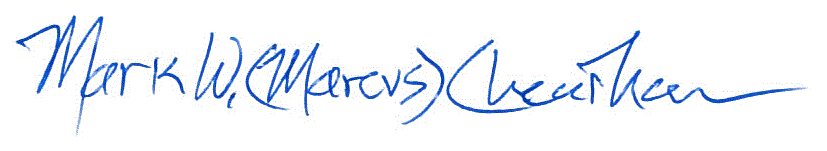 Mark W. (Marcus) Cheatham